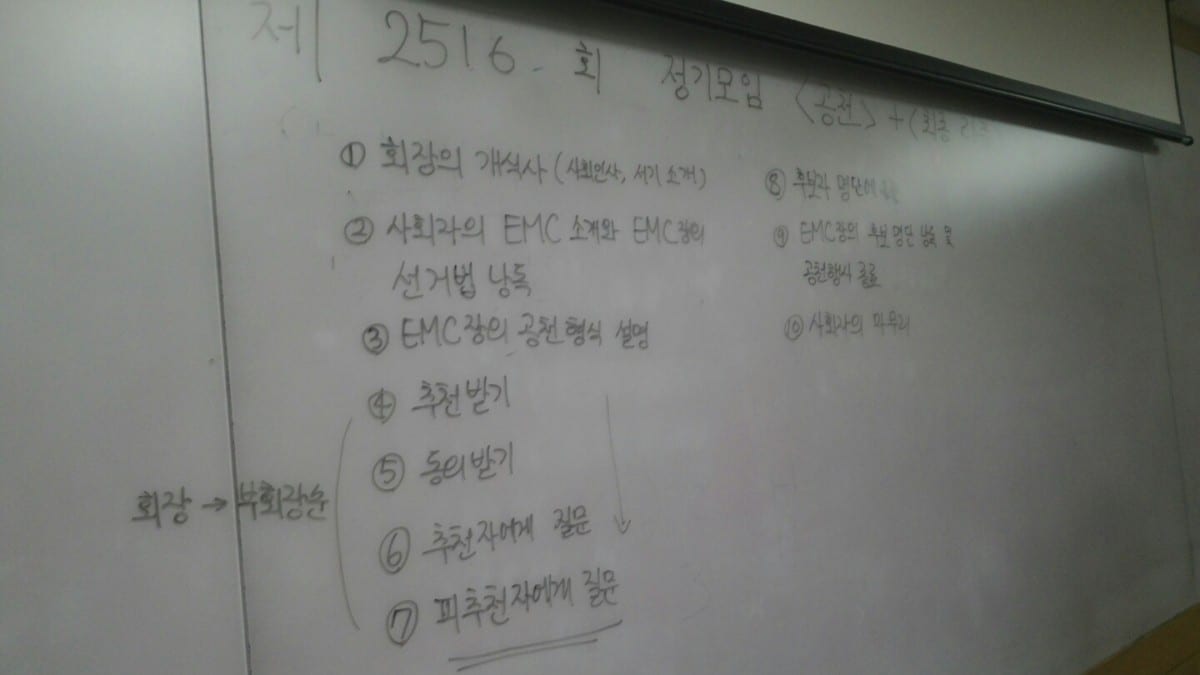 제 2516회 정기모임 <공천> + (
① 회장의 개식사 (사회인사, 서기 소개)
② 사회자의 EMC 소개와 EMC장의
선거법 낭독
③ EMC장의 공천형식 설명
④ 추천받기
⑤ 동의받기
⑥ 추천자에게 질문
⑦ 피추천자에게 질문
회장 → 부회장순
⑧ 후보자 명단에
⑨ EMC장의 후보 명단 낭독 및
공천행사 종료
⑩ 사회자의 마무리